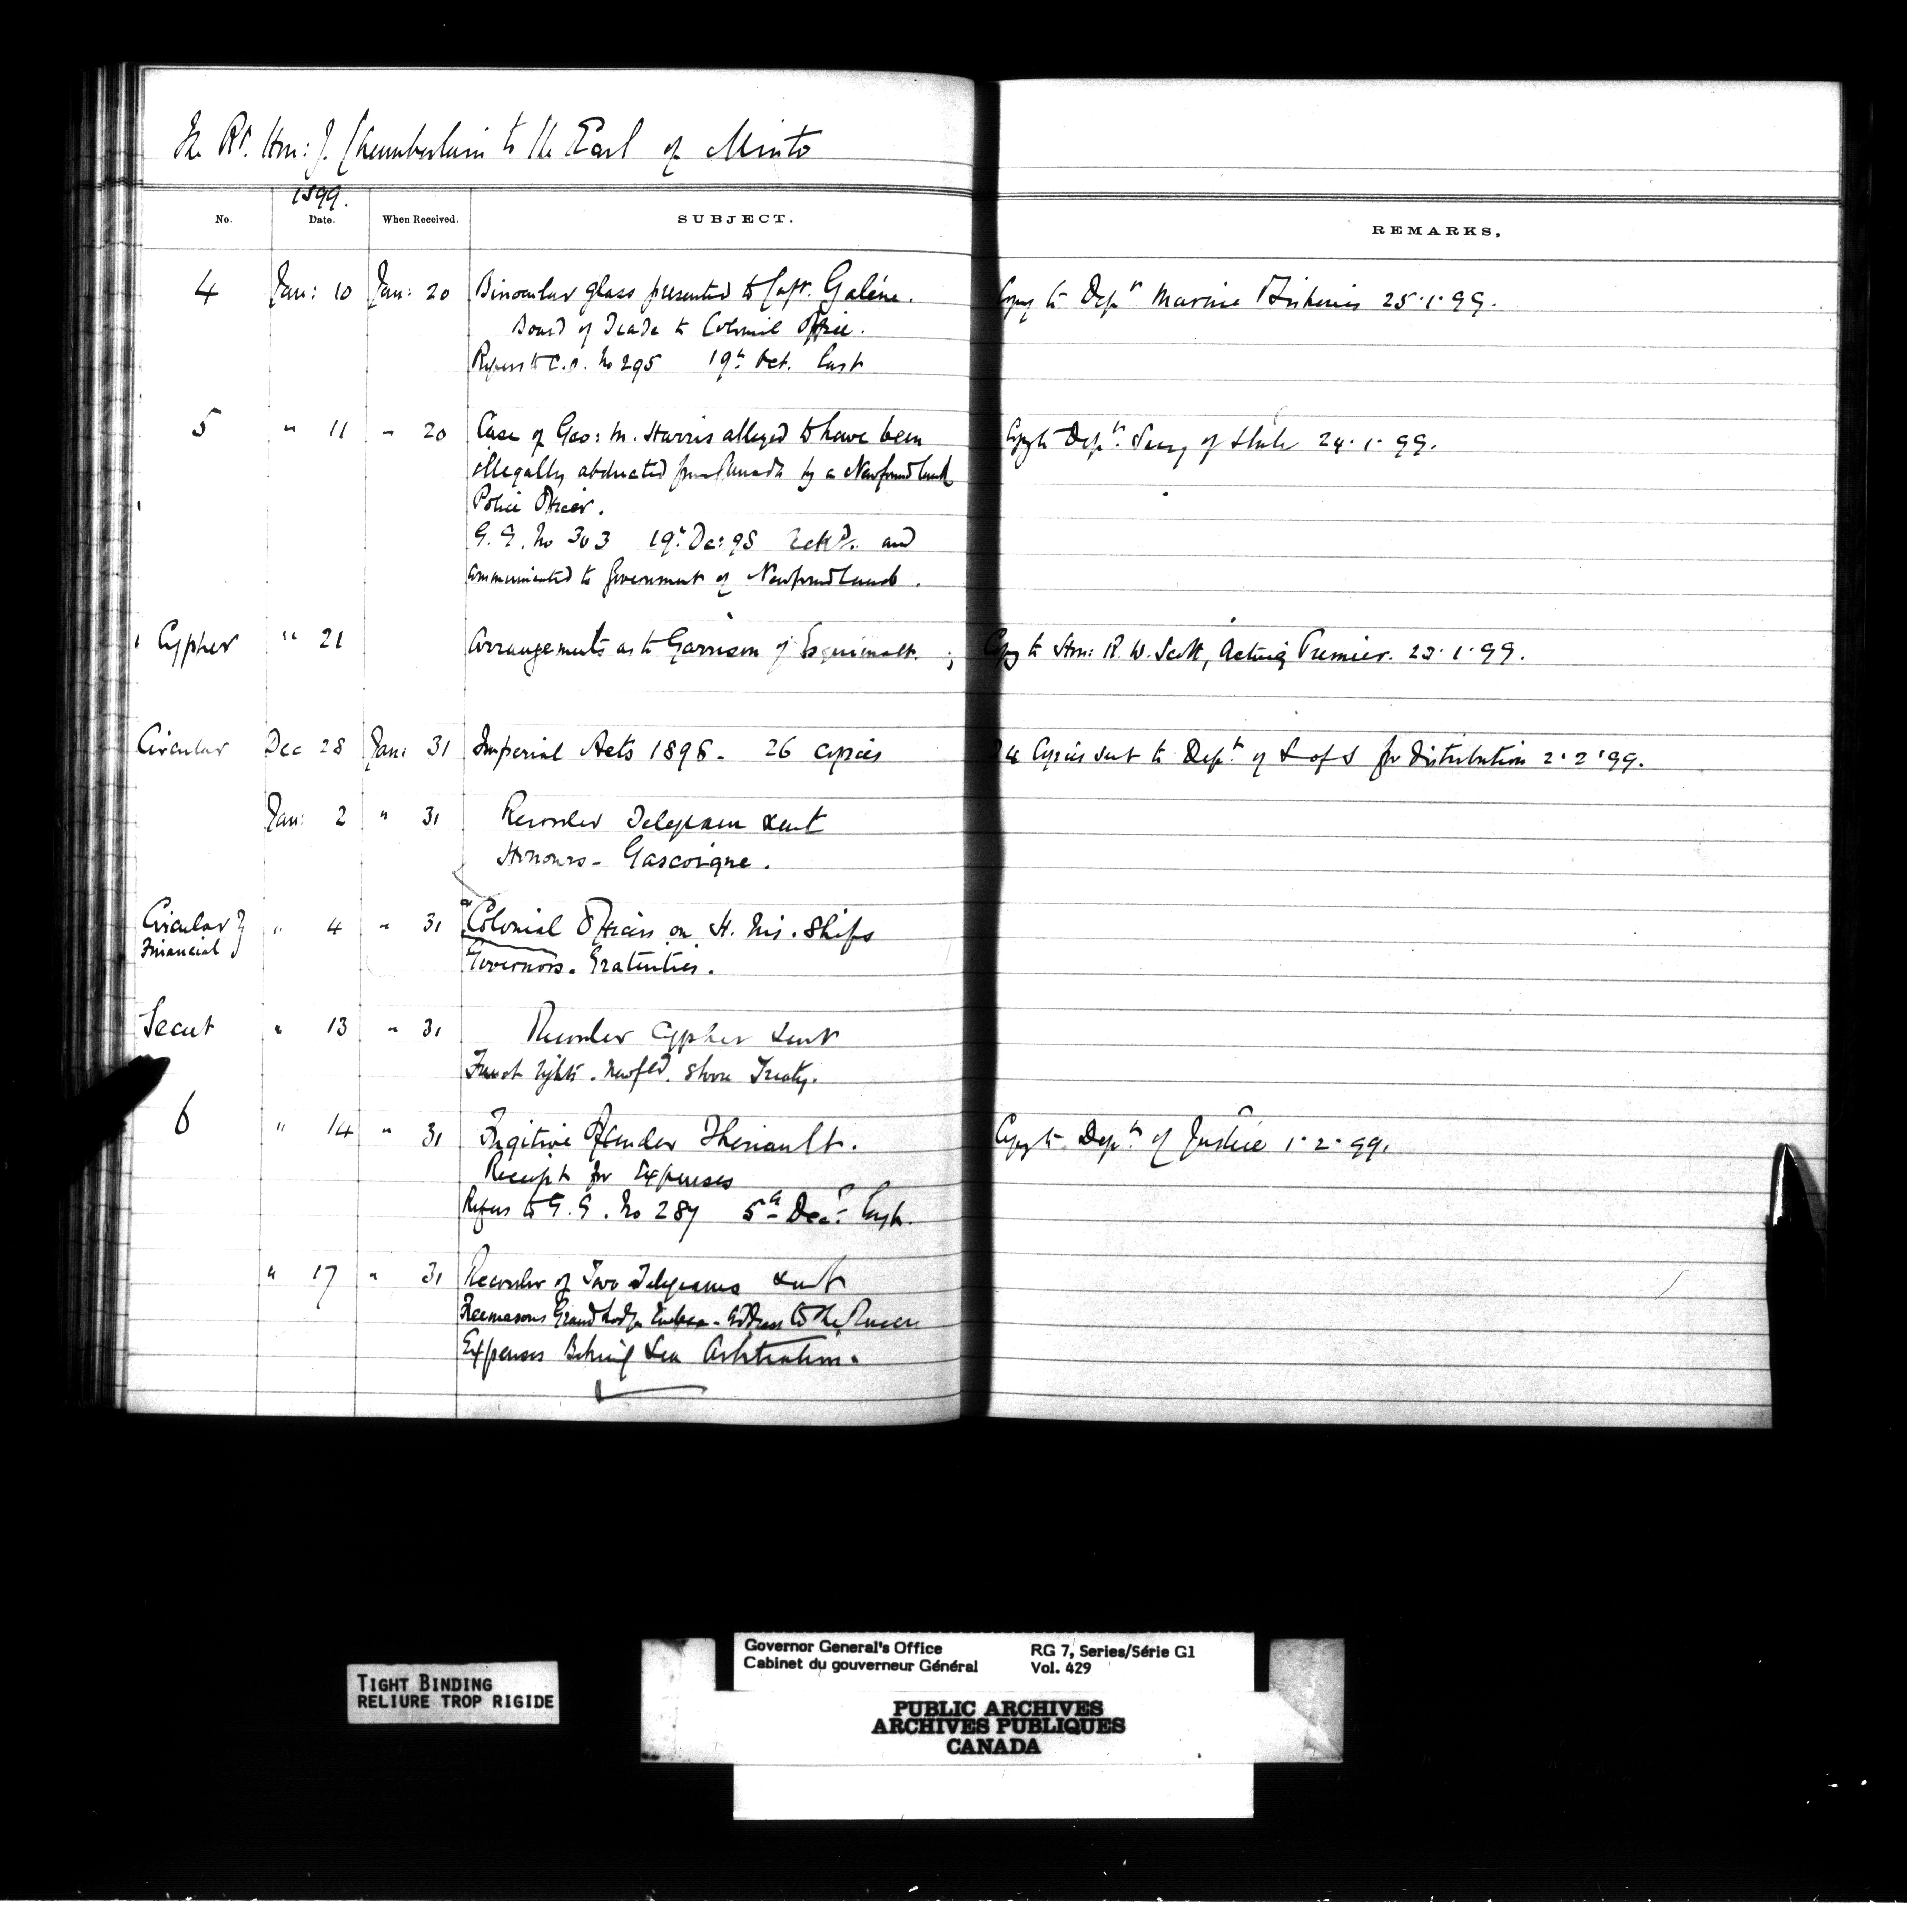 The Rt. Hon: J. Chamberlain to the Earl of Minto
1899.
No. Date. When Received. SUBJECT. REMARKS,
4 Jan: 10 Jan: 20 Binocular glass presented to Capt. Galéne. Copy to Dept Marine & Fisheries 25.1.99.
Board of Trade to Colonial Office.
Refers to C.O. No 295 19th Oct. last
5 " 11 " 20 Case of Geo: M. Harris alleged to have been Copy to Dept. Secy of State 24.1.99.
illegally abducted from Canada by a Newfoundland
Police Officer.
G.G. No 303 19th Dec: 98 and
communicated to Government of Newfoundland.
Cypher " 21 Arrangements as to Garrison of Esquimalt. Copy to Hon: R. W. Scott, Acting Premier. 23.1.99.
Circular Dec 28 Jan: 31 Imperial Acts 1898 - 26 copies 24 Copies sent to Dept. of S of S for distribution 2.2.99.
Jan: 2 " 31 Recorder Telegram sent
Honours - Gascoigne.
Circular } " 4 " 31 Colonial Officers on H. M's. Ships
Financial }
Governors. Gratuities.
Secret " 13 " 31 Recorder Cypher sent
French rights. Newfld. Shore Treaty.
6 " 14 " 31 Fugitive Offender Theriault. Copy to Dept. of Justice 1.2.99.
Receipt for Expenses
Refers to G.G. No 287 5th Decr. last.
" 17 " 31 Recorder of Two Telegrams sent
Freemasons Grand Lodge Quebec - Address to the Queen
Expenses Behring Sea Arbitration.
TIGHT BINDING
RELIURE TROP RIGIDE
Governor General's Office RG 7, Series/Série G1
Cabinet du gouverneur Général Vol. 429
PUBLIC ARCHIVES
ARCHIVES PUBLIQUES
CANADA